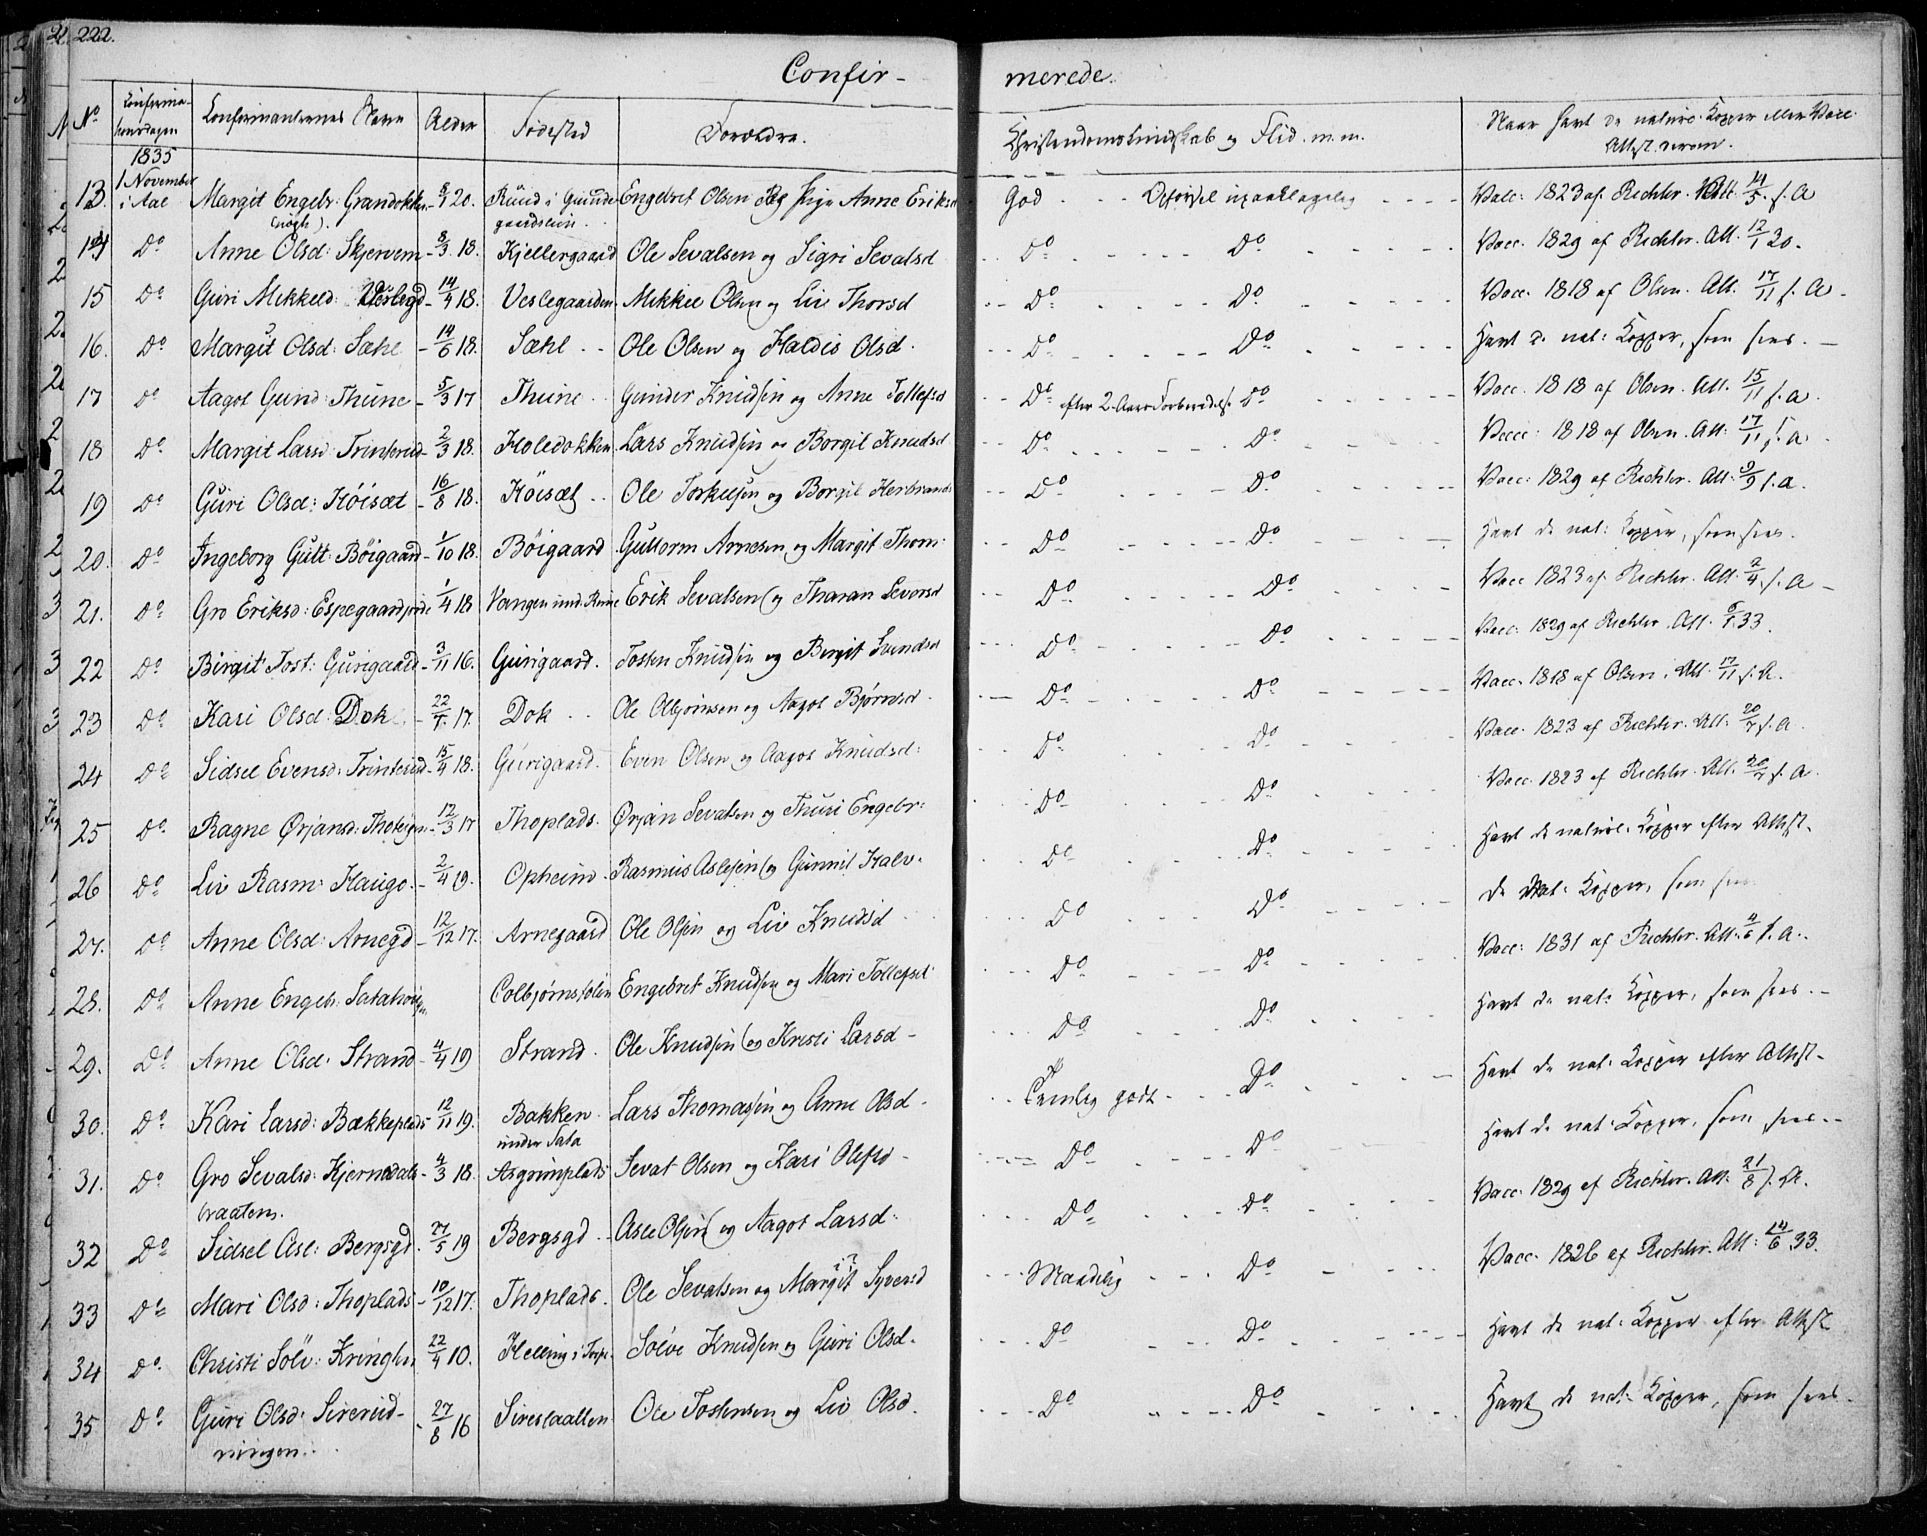 222.
Confir- merede.
No Confirma- Confirmanternes Navn Alder Fødested Forældre. Christendomskundskab og Flid m.m. Naar havt de naturl. Kopper eller Vacc:
tionsdagen Attest derom.
1835
1 November
13. i Aal Margit Engebr: Grandokken 20. Ruud i Engebret Olsen og Pige Anne Eriksd God Opførsel upaaklagelig Vacc: 1823 af Richter. Att. 14/5 s. A
14 Do Anne Olsd: Skjervem - 8/3 18. Kjellergaard Ole Sevalsen og Sigri Sevalsd Do Do Vacc. 1829 af Richter. Att. 12/1 30.
15 Do Guri Mikkeld: - 14/4 18. Veslegaarden Mikkel Olsen og Liv Thorsd Do Do Vacc. 1818 af Olsen. Att. 17/11 s. A.
16. Do Margit Olsd: Sæhl - 14/6 18. Sæhl Ole Olsen og Haldis Olsd. Do Do Havt d. nat: Kopper, som sees.
17 Do Aagot Gund: Thune - 5/3 17 Thune Gunder Knudsen og Anne Tollefsd Do efter 2 Aars Forberedels. Do Vacc. 1818 af Olsen. Att. 15/11 s. a.
18 Do Margit Larsd: Trinterud - 2/3 18. Holedokken Lars Knudsen og Borgil Knudsd Do Do Vacc: 1818 af Olsen. Att: 17/11 s. a.
19 Do Guri Olsd: Höisæt - 16/8 18. Höisæt Ole Torkelsen og Borgil Herbrands Do Do Vacc: 1829 af Richter. Att: 9/9 s. a.
20. Do Ingeborg Gutt: Böigaard - 1/10 18. Böigaard Guttorm Arnesen og Margit Thom: Do Do Havt de nat: Kopper, som sees.
21. Do Gro Eriksd: Espegaard 1/4 18 Vangen und. Erik Sevalsen og Tharan Seversd Do Do Vacc 1823 af Richter. Att. 2/4 s. A
22 Do Birgit Tost: Gurigaard - 3/11 16. Gurigaard. Tosten Knudsen og Birgit Svendsd Do Do Vacc: 1829 af Richter. Att. 33.
23 Do Kari Olsd: Dok - 22/7 17. Dok Ole Asbjørnsen og Aagot Bjørnsd Do Do Vacc. 1818 af Olsen. Att. 17/11 s. A.
24 Do Sidsel Evensd: Trinterud - 15/4 18. Gurigaard. Even Olsen og Aagot Knudsd: Do Do Vacc. 1823 af Richter. Att: 20/7 s. a.
25 Do Ragne Ørjansd: - 12/3 17 Thoplads. Ørjan Sevalsen og Thuri Engebr: Do Do Vacc. 1823 af Richter. Att. 20/7 s. A.
26 Do Liv Rasm: Haugo. - 2/4 19. Opheim. Rasmus Aslesen og Gunnil Halv. Do Do Havt de naturl. Kopper efter Attest.
27. Do Anne Olsd: Arnegd - 12/12 17. Arnegaard Ole Olsen og Liv Knudsd Do Do de Nat: Kopper, som sees
28. Do Anne Engeb: Colbjørnstolen Engebret Knudsen og Mari Tollefsd Do Do Vacc: 1831 af Richter. Att: 4/6 s. a.
29. Do Anne Olsd: Strand - 4/4 19 Strand. Ole Knudsen og Kristi Larsd - Do Do Havt de nat: Kopper, som sees.
30. Do Kari Larsd: Bækkeplads - 12/11 19. Bakken Lars Thomassen og Anne Olsd - Temlig godt Do Havt de nat: Kopper efter Attest.
under Sata
31. Do Gro Sevalsd: Kjernedals- 4/3 18. Asgrimplads Sevat Olsen og Kari Olefsd - Do Do Havt de nat: Kopper, som sees.
braaten.
32 Do Sidsel Asl: Bergsgd. 27/5 19 Bergsgd Asle Olsen og Aagot Larsd: Do Do Vacc: 1829 af Richter. Att: 21/8 s. A.
33 Do Mari Olsd: Thoplads - 10/12 17. Thoplads. Ole Sevalsen og Margit Syversd Maadelig Do Vacc. 1826 af Richter. Att: 14/6 33.
34 Do. Christi Sölv: Kringlen 22/4 10. Helling i Sølve Knudsen og Guri Olsd. Do Do Havt de nat: Kopper efter Attest
35 Do Guri Olsd: Sirerud- - 27/8 16 Sireslaatten Ole Tostensen og Liv Olsd. Do Do Havt de nat: Kopper, som sees.